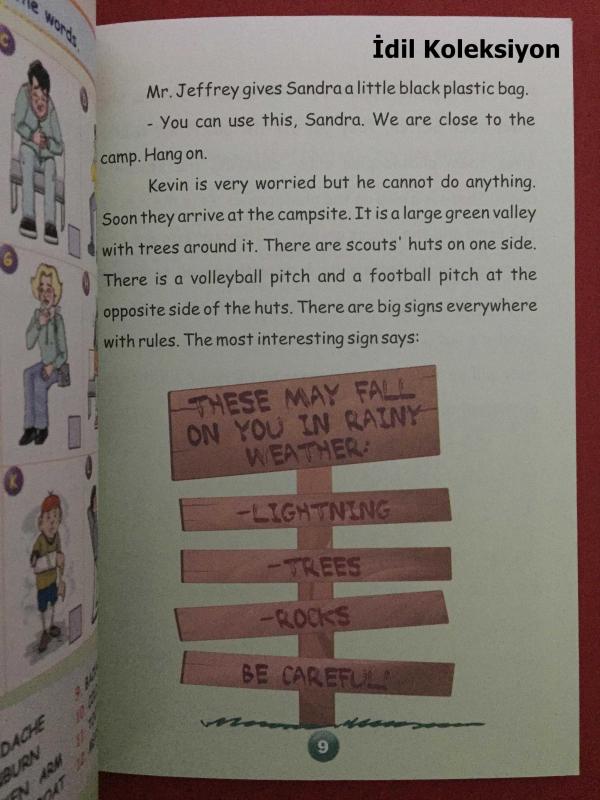 he words.
C
G
K
9.
10.
11.
12.
DACHE
NBURN
EN ARM
OAT
İdil Koleksiyon
Mr. Jeffrey gives Sandra a little black plastic bag.
- You can use this, Sandra. We are close to the
camp. Hang on.
Kevin is very worried but he cannot do anything.
Soon they arrive at the campsite. It is a large green valley
with trees around it. There are scouts' huts on one side.
There is a volleyball pitch and a football pitch at the
opposite side of the huts. There are big signs everywhere
with rules. The most interesting sign says:
THESE MAY FALL
ON YOU IN RAINY
WEATHER:
-LIGHTNING
-TREES
-ROCKS
BE CAREFUL!
9